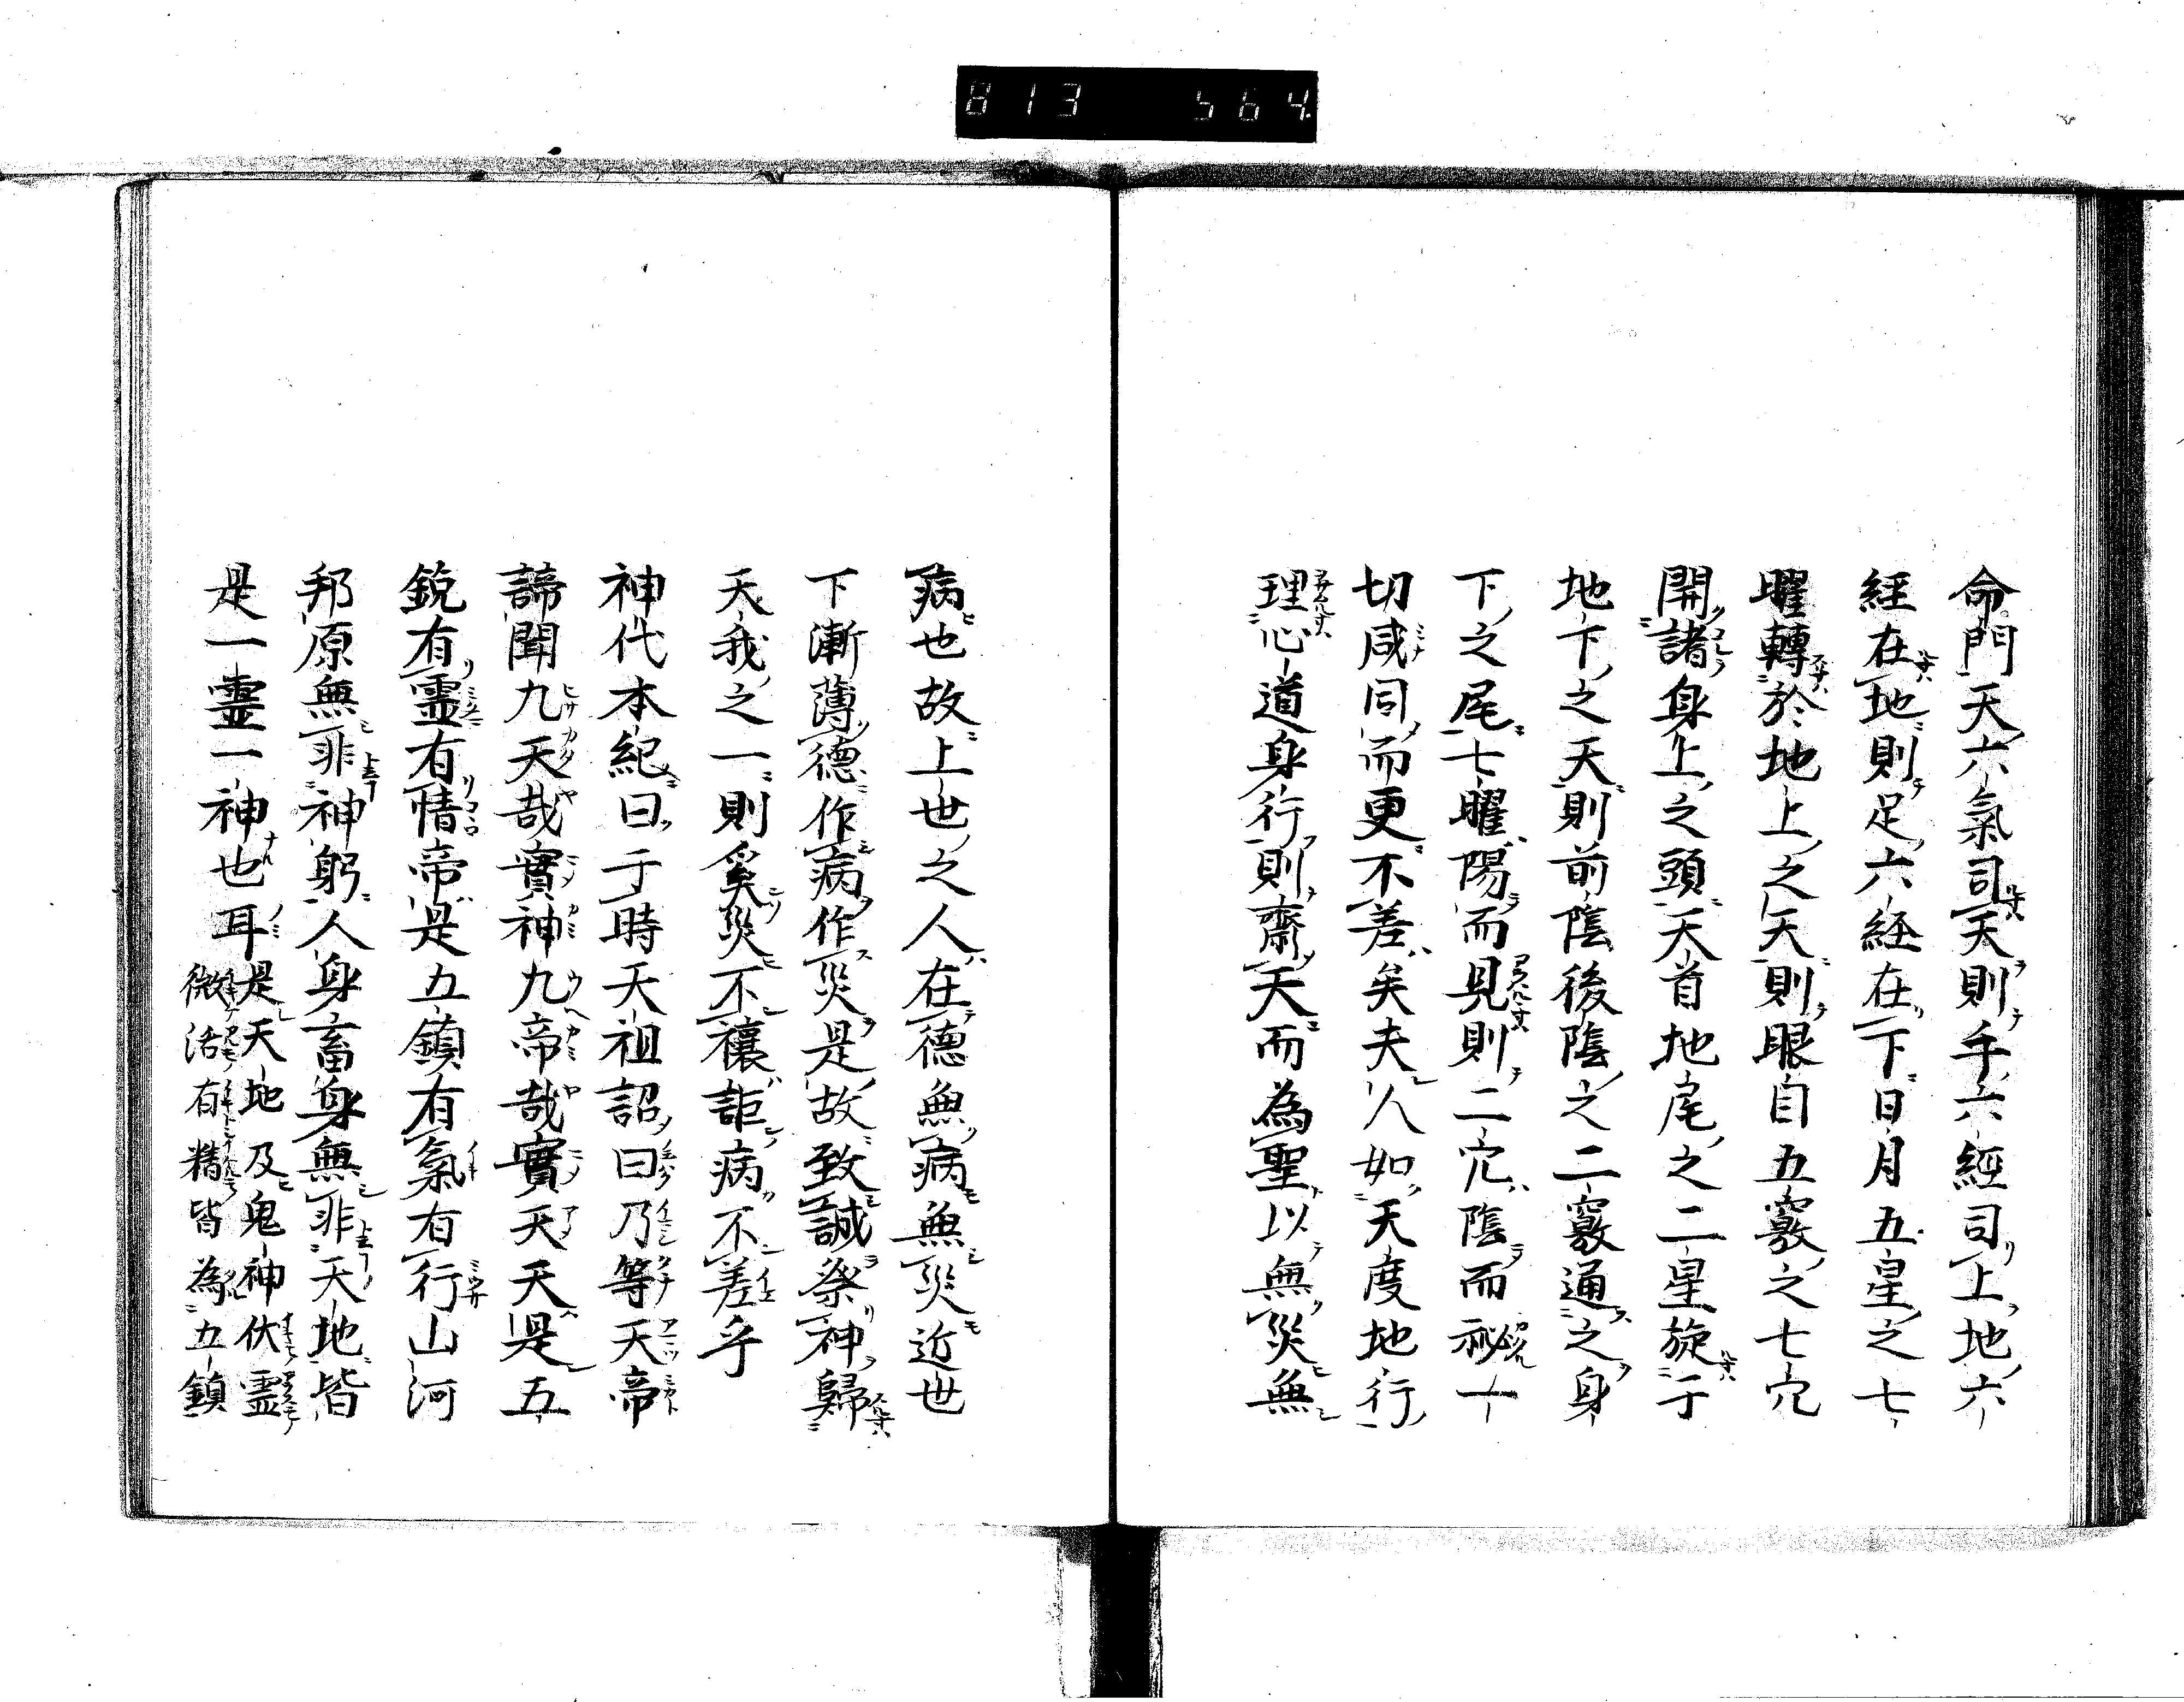 813 564
命門天六氣司天則手六經司上地六
經在地則足六経在下日月五星之七
曜轉於地上之天則眼目五竅之七穴
開諸身上之頭天首地尾之二星旋于
地下之天則前陰後陰之二竅通之身
下之尾七曜陽而見則二穴陰而祕一
切咸同而更不差矣夫人如天度地行
理心道身行則齋天而為聖以無災無
病也故上世之人在德無病無災近世
下漸薄德作病作災是故致誠祭神歸
天我之一則奚災不禳詎病不差乎
神代本紀曰于時天祖詔曰乃等天帝
諦聞九天哉實神九帝哉實天天是五
鋭有霊有情帝是五鎮有氣有行山河
邦原無非神躬人身畜身無非天地皆
是一霊一神也耳
是天地及鬼神伏霊
微活有精皆為五鎮